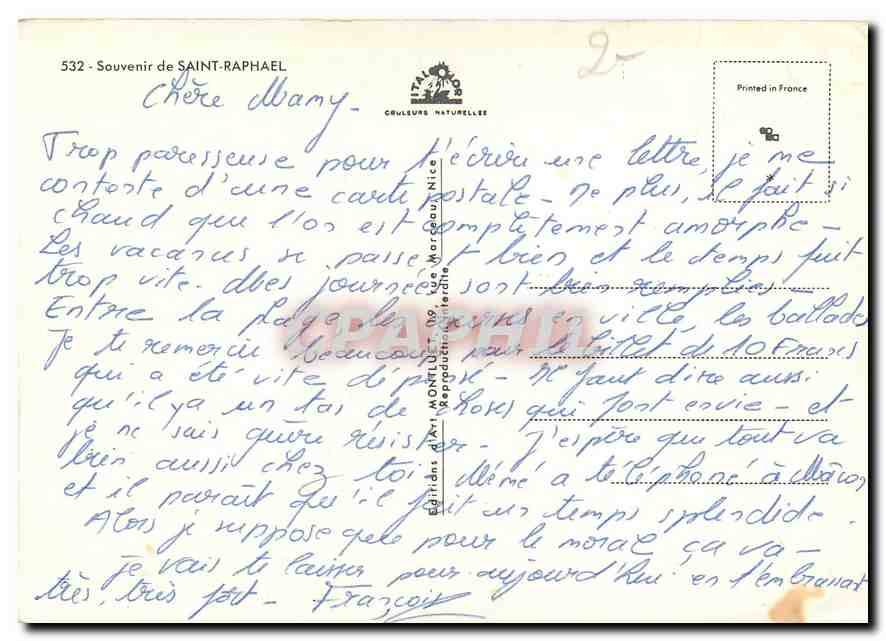 532 - Souvenir de SAINT-RAPHAEL
2-
ITALCOLOR
COULEURS NATURELLES
Printed in France
Chère Mamy -
Trop paresseuse pour t'écrire une lettre, je me
contente d'une carte postale - De plus, il fait si
chaud que l'on est complètement amorphe -
Les vacances se passent bien et le temps fuit
trop vite. Mes journées sont bien remplies -
Entre la plage les courses en ville, les ballades
Je te remercie beaucoup pour le billet de 10 Francs
qui a été vite dépensé - Il faut dire aussi
qu'il y a un tas de choses qui font envie - et
je ne sais guère résister - J'espère que tout va
bien aussi chez toi. Mémé a téléphoné à Mâcon
et il paraît qu'il fait un temps splendide.
Alors je suppose que pour le moral ça va -
je vais te laisser pour aujourd'hui en t'embrassant
très, très fort - François
Editions d'Art MONTLUET, 19, rue Marceau, Nice
Reproduction interdite
CPAPHIL